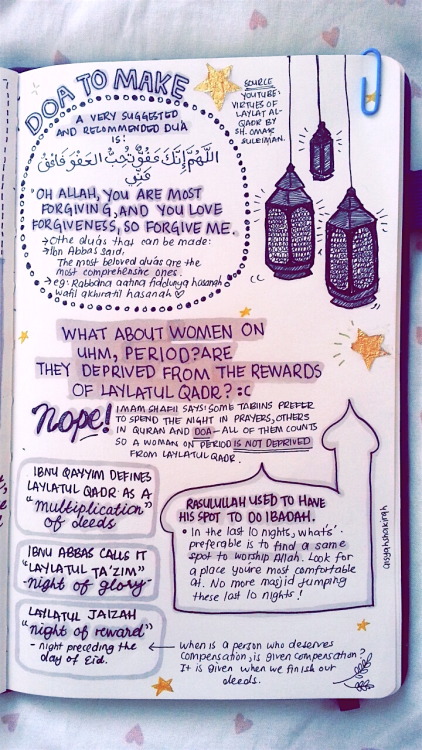 DOA TO MAKE
A VERY SUGGESTED
AND RECOMMENDED DUA
IS:
اللهم إنك عفو تحب العفو فاعف
عني
"OH ALLAH, YOU ARE MOST
FORGIVING, AND YOU LOVE
FORGIVENESS, SO FORGIVE ME.
→ Othe duás that can be made:
→ Ibn Abbas said,
The most beloved duás are the
most comprehensive ones.
→ eg: Rabbana aatina fiddunya hasanah
wafil akhirati hasanah ♡
SOURCE
YOUTUBE:
VIRTUES OF
LAYLAT AL-
QADR BY
SH. OMAR
SULEIMAN.
WHAT ABOUT WOMEN ON
UHM, PERIOD? ARE
THEY DEPRIVED FROM THE REWARDS
OF LAYLATUL QADR? :C
Nope!
IMAM SHAFII SAYS: SOME TABIINS PREFER
TO SPEND THE NIGHT IN PRAYERS, OTHERS
IN QURAN AND DOA - ALL OF THEM COUNTS
SO A WOMAN ON PERIOD IS NOT DEPRIVED
FROM LAYLATUL QADR.
IBNU QAYYIM DEFINES
LAYLATUL QADR AS A
"multiplication"
of deeds
IBNU ABBAS CALLS IT
"LAYLATUL TA'ZIM"
-night of glory-
LAYLATUL JAIZAH
"night of reward"
- night preceding the
day of Eid.
RASULULLAH USED TO HAVE
HIS SPOT TO DO IBADAH.
• In the last 10 nights, what's
preferable is to find a same
spot to worship Allah. Look for
a place you're most comfortable
at. No more masjid jumping
these last 10 nights!
aisyahshakirah
when is a person who deserves
compensation, is given compensation?
It is given when we finish our
deeds.